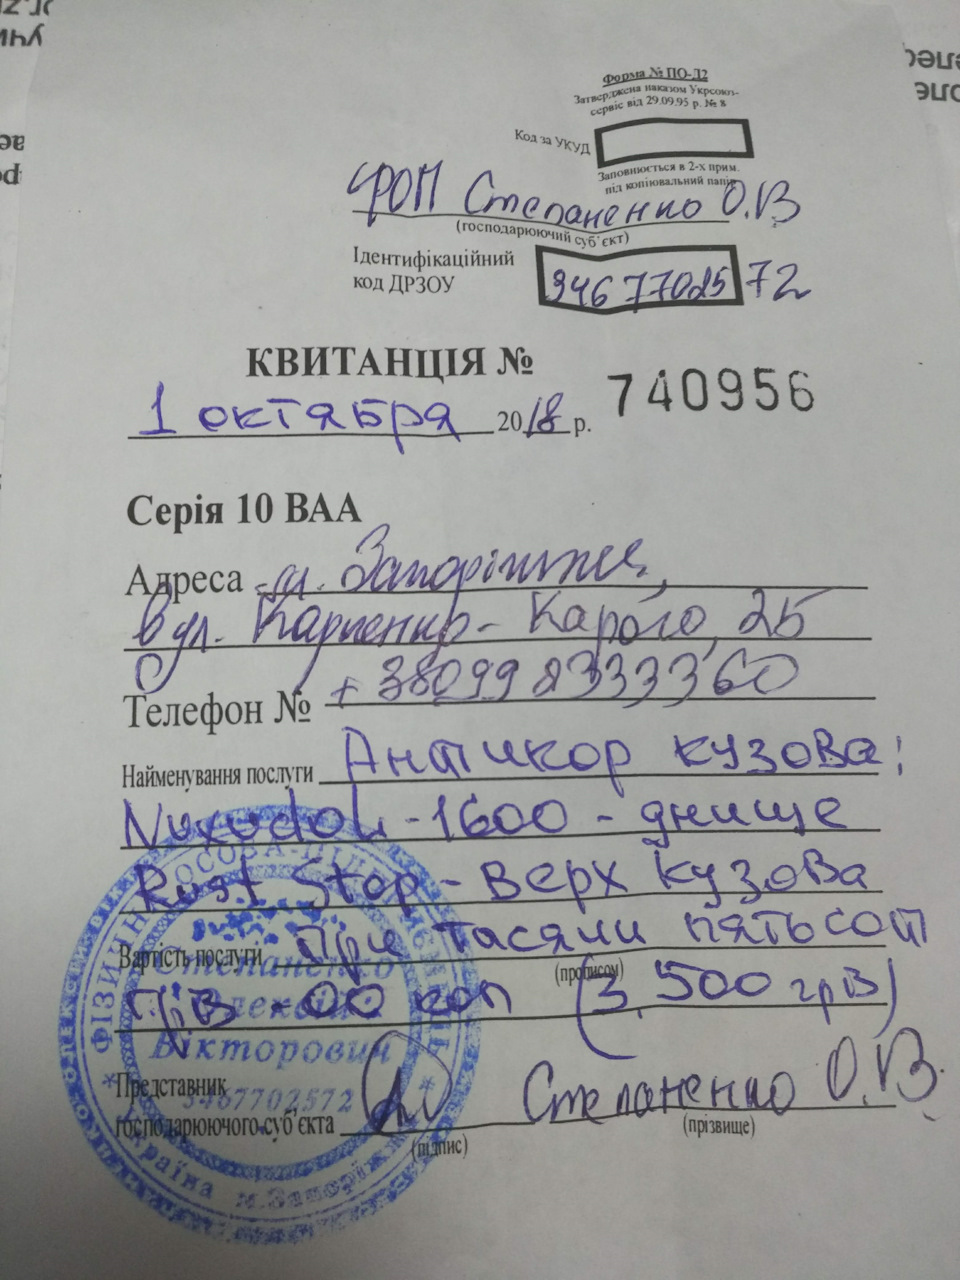 Форма № ПО-Д2
Затверджена наказом Укрсоюз-
сервіс від 29.09.95 р. № 8
Код за УКУД
Заповнюється в 2-х прим.
під копіювальний папір
ФОП Степаненко О.В
(господарюючий суб'єкт)
Ідентифікаційний
код ДРЗОУ
34677025 72
КВИТАНЦІЯ №
740956
1 октября 2018 р.
Серія 10 ВАА
Адреса м. Запоріжжя,
вул. Карпенко-Карого, 25
Телефон № +380998333360
Найменування послуги Антикор кузова:
Noxudol-1600 - днище
Rust Stop - верх кузова
Вартість послуги три тасячи пятьсот
(прописом)
грв 00 коп (3,500 грв)
Представник
господарюючого суб'єкта Степаненко О.В.
(підпис) (прізвище)
ФІЗИЧНА ОСОБА-ПІДПРИЄМЕЦЬ
Степаненко
Олексій
Вікторович
3467702572
Україна м.Запоріжжя